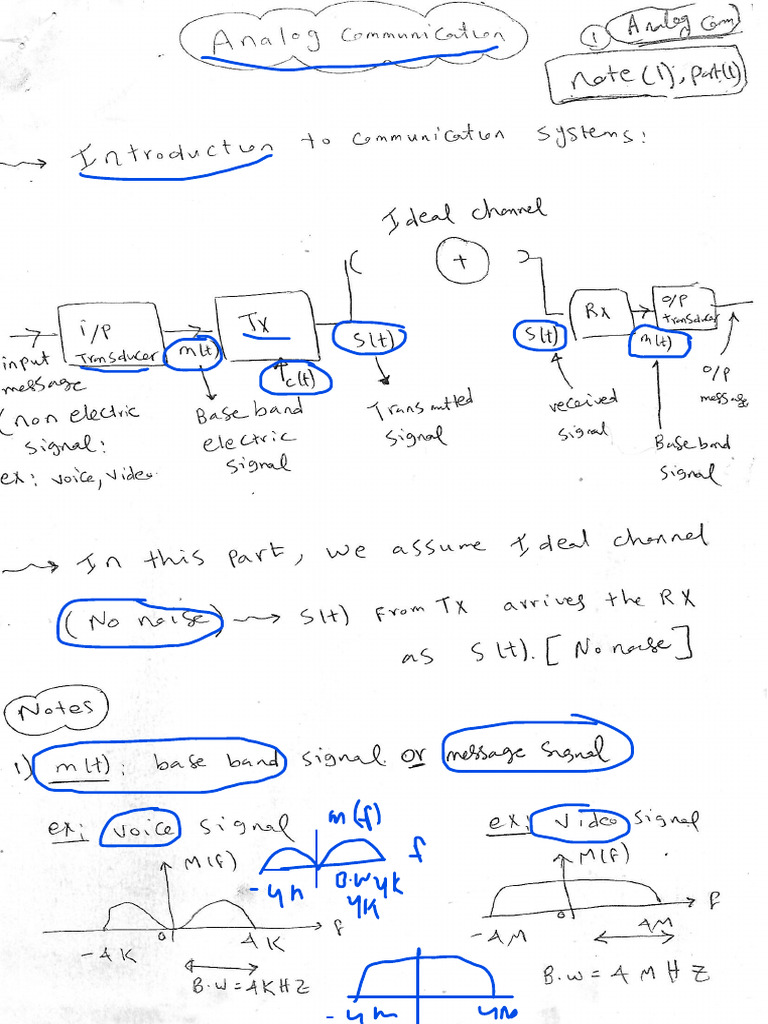 Analog Communication
① Analog Com
note(1), part(1)
Introduction to communication systems:
Ideal channel
+
i/p
Transducer
m(t)
Tx
c(t)
S(t)
S(t)
Rx
o/p
transducer
m(t)
input
message
(non electric
signal:
ex: voice, video
Base band
electric
signal
Transmitted
signal
received
signal
o/p
message
Base band
signal
In this part, we assume Ideal channel
(No noise) → S(t) from Tx arrives the RX
as S(t). [No noise]
Notes
1) m(t): base band signal or message signal
ex: voice signal
M(f)
-4K
0
4K
f
B.W = 4KHZ
m(f)
f
B.W 4K
4K
ex: Video signal
M(f)
-4M
0
4M
f
B.W = 4MHZ
-4m